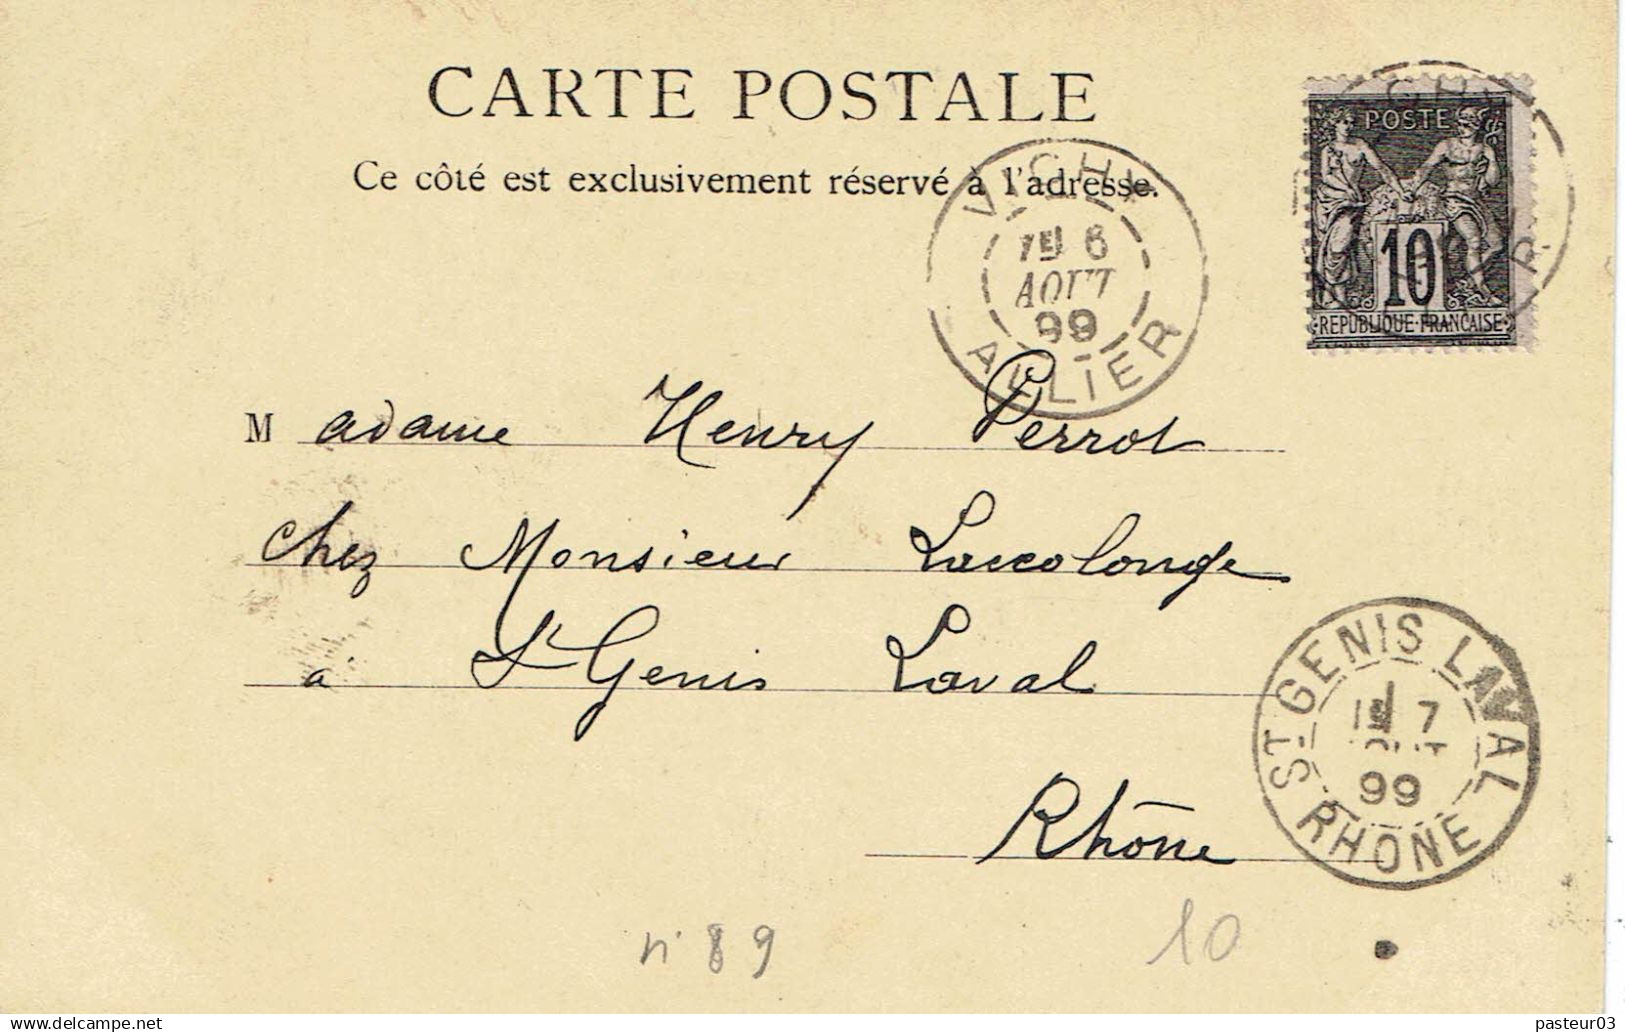 CARTE POSTALE
Ce côté est exclusivement réservé à l'adresse.
POSTE
10
REPUBLIQUE FRANCAISE
VICHY
1E 6
AOUT
99
ALLIER
Madame Henry Perrot
chez Monsieur Laccolonge
à St Genis Laval
Rhône
ST GENIS LAVAL
1E 7
99
RHONE
n° 89
10
pasteur03